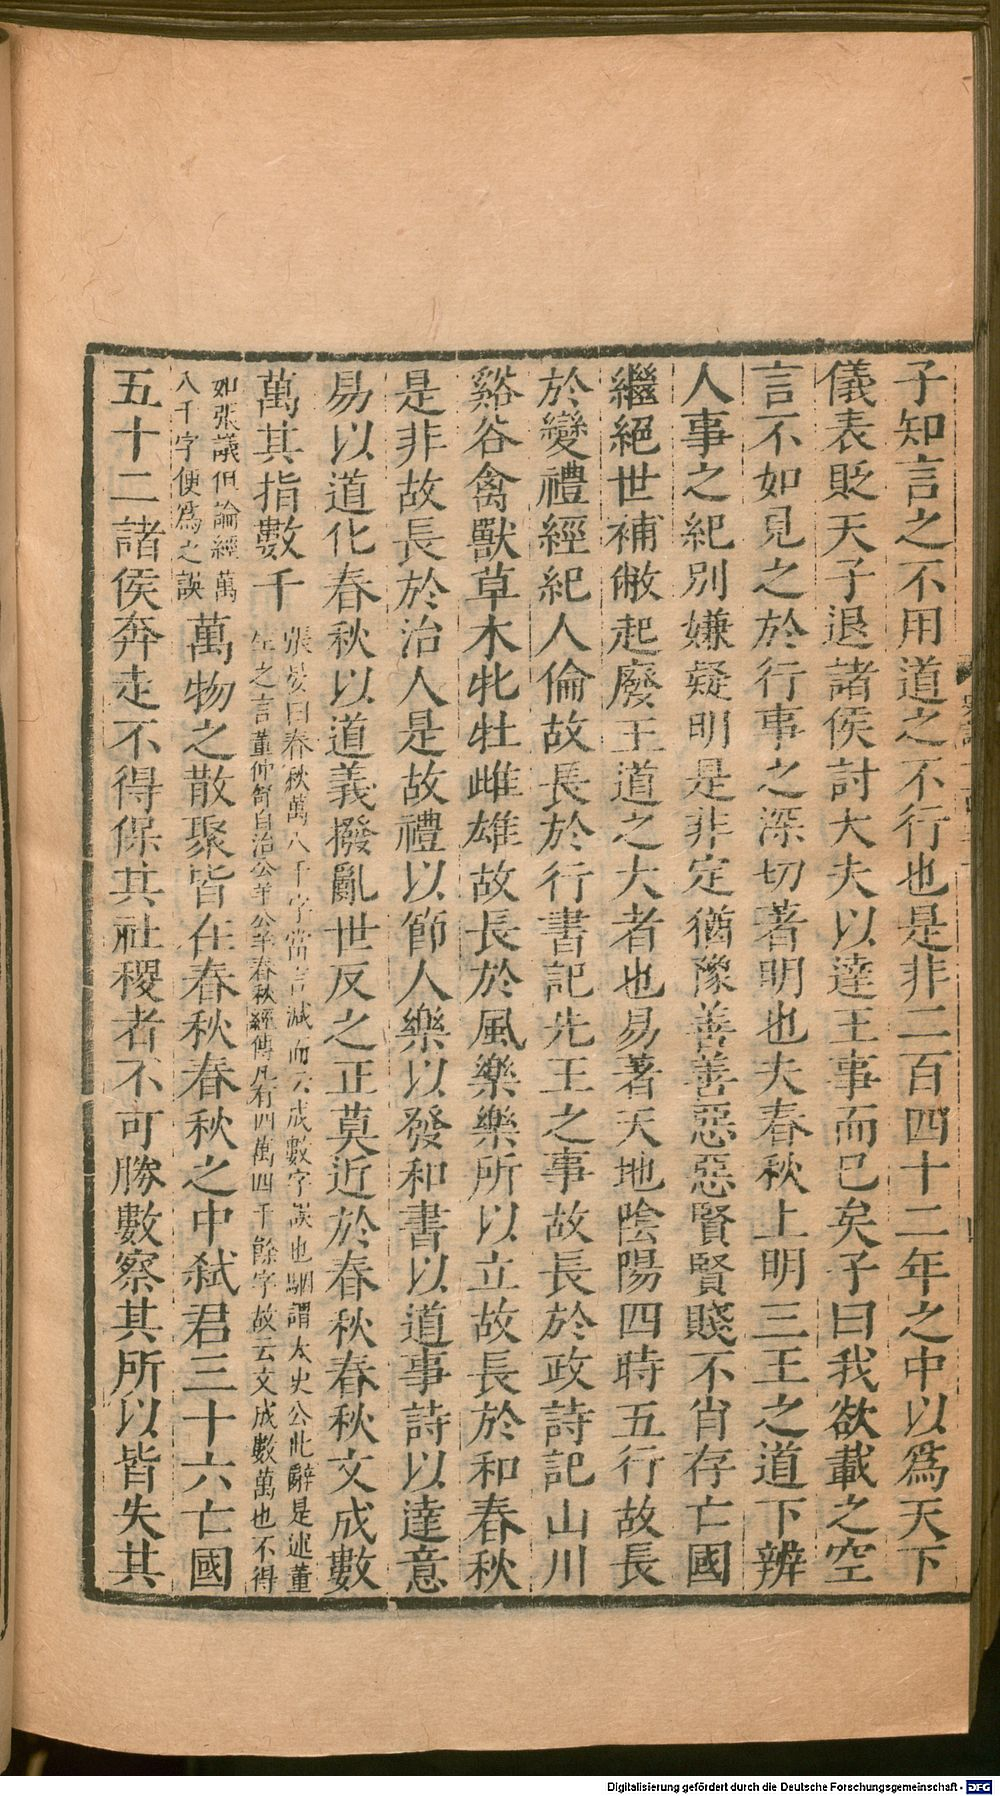 子知言之不用道之不行也是非二百四十二年之中以爲天下
儀表貶天子退諸侯討大夫以達王事而已矣子曰我欲載之空
言不如見之於行事之深切著明也夫春秋上明三王之道下辨
人事之紀別嫌疑明是非定猶豫善善惡惡賢賢賤不肖存亡國
繼絕世補敝起廢王道之大者也易著天地陰陽四時五行故長
於變禮經紀人倫故長於行書記先王之事故長於政詩記山川
谿谷禽獸草木牝牡雌雄故長於風樂樂所以立故長於和春秋
是非故長於治人是故禮以節人樂以發和書以道事詩以達意
易以道化春秋以道義撥亂世反之正莫近於春秋春秋文成數
萬其指數千
張晏曰春秋萬八千字當言減而云成數字誤也駰謂太史公此辭是述董
生之言董仲舒自治公羊公羊春秋經傳凡有四萬四千餘字故云文成數萬也不得
如張議但論經萬
八千字便爲之誤
萬物之散聚皆在春秋春秋之中弒君三十六亡國
五十二諸侯奔走不得保其社稷者不可勝數察其所以皆失其
Digitalisierung gefördert durch die Deutsche Forschungsgemeinschaft - DFG